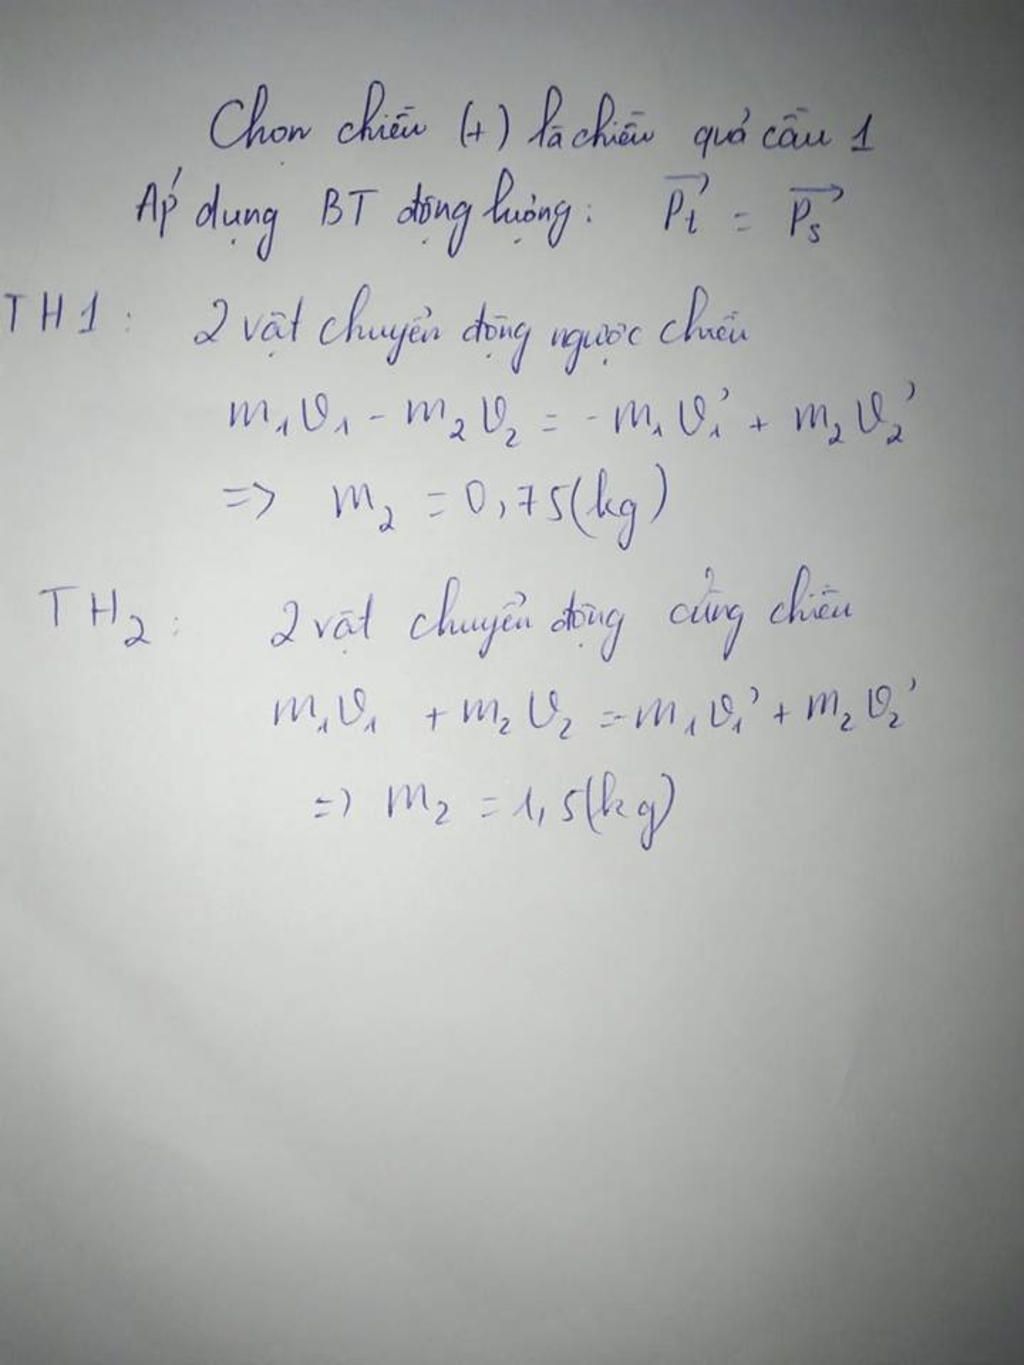 Chọn chiều (+) là chiều quả cầu 1
Áp dụng BT động lượng: $\vec{P_t} = \vec{P_s}$
TH1: 2 vật chuyển động ngược chiều
m₁v₁ - m₂v₂ = -m₁v₁' + m₂v₂'
=> m₂ = 0,75(kg)
TH₂: 2 vật chuyển động cùng chiều
m₁v₁ + m₂v₂ = -m₁v₁' + m₂v₂'
=> m₂ = 1,5(kg)